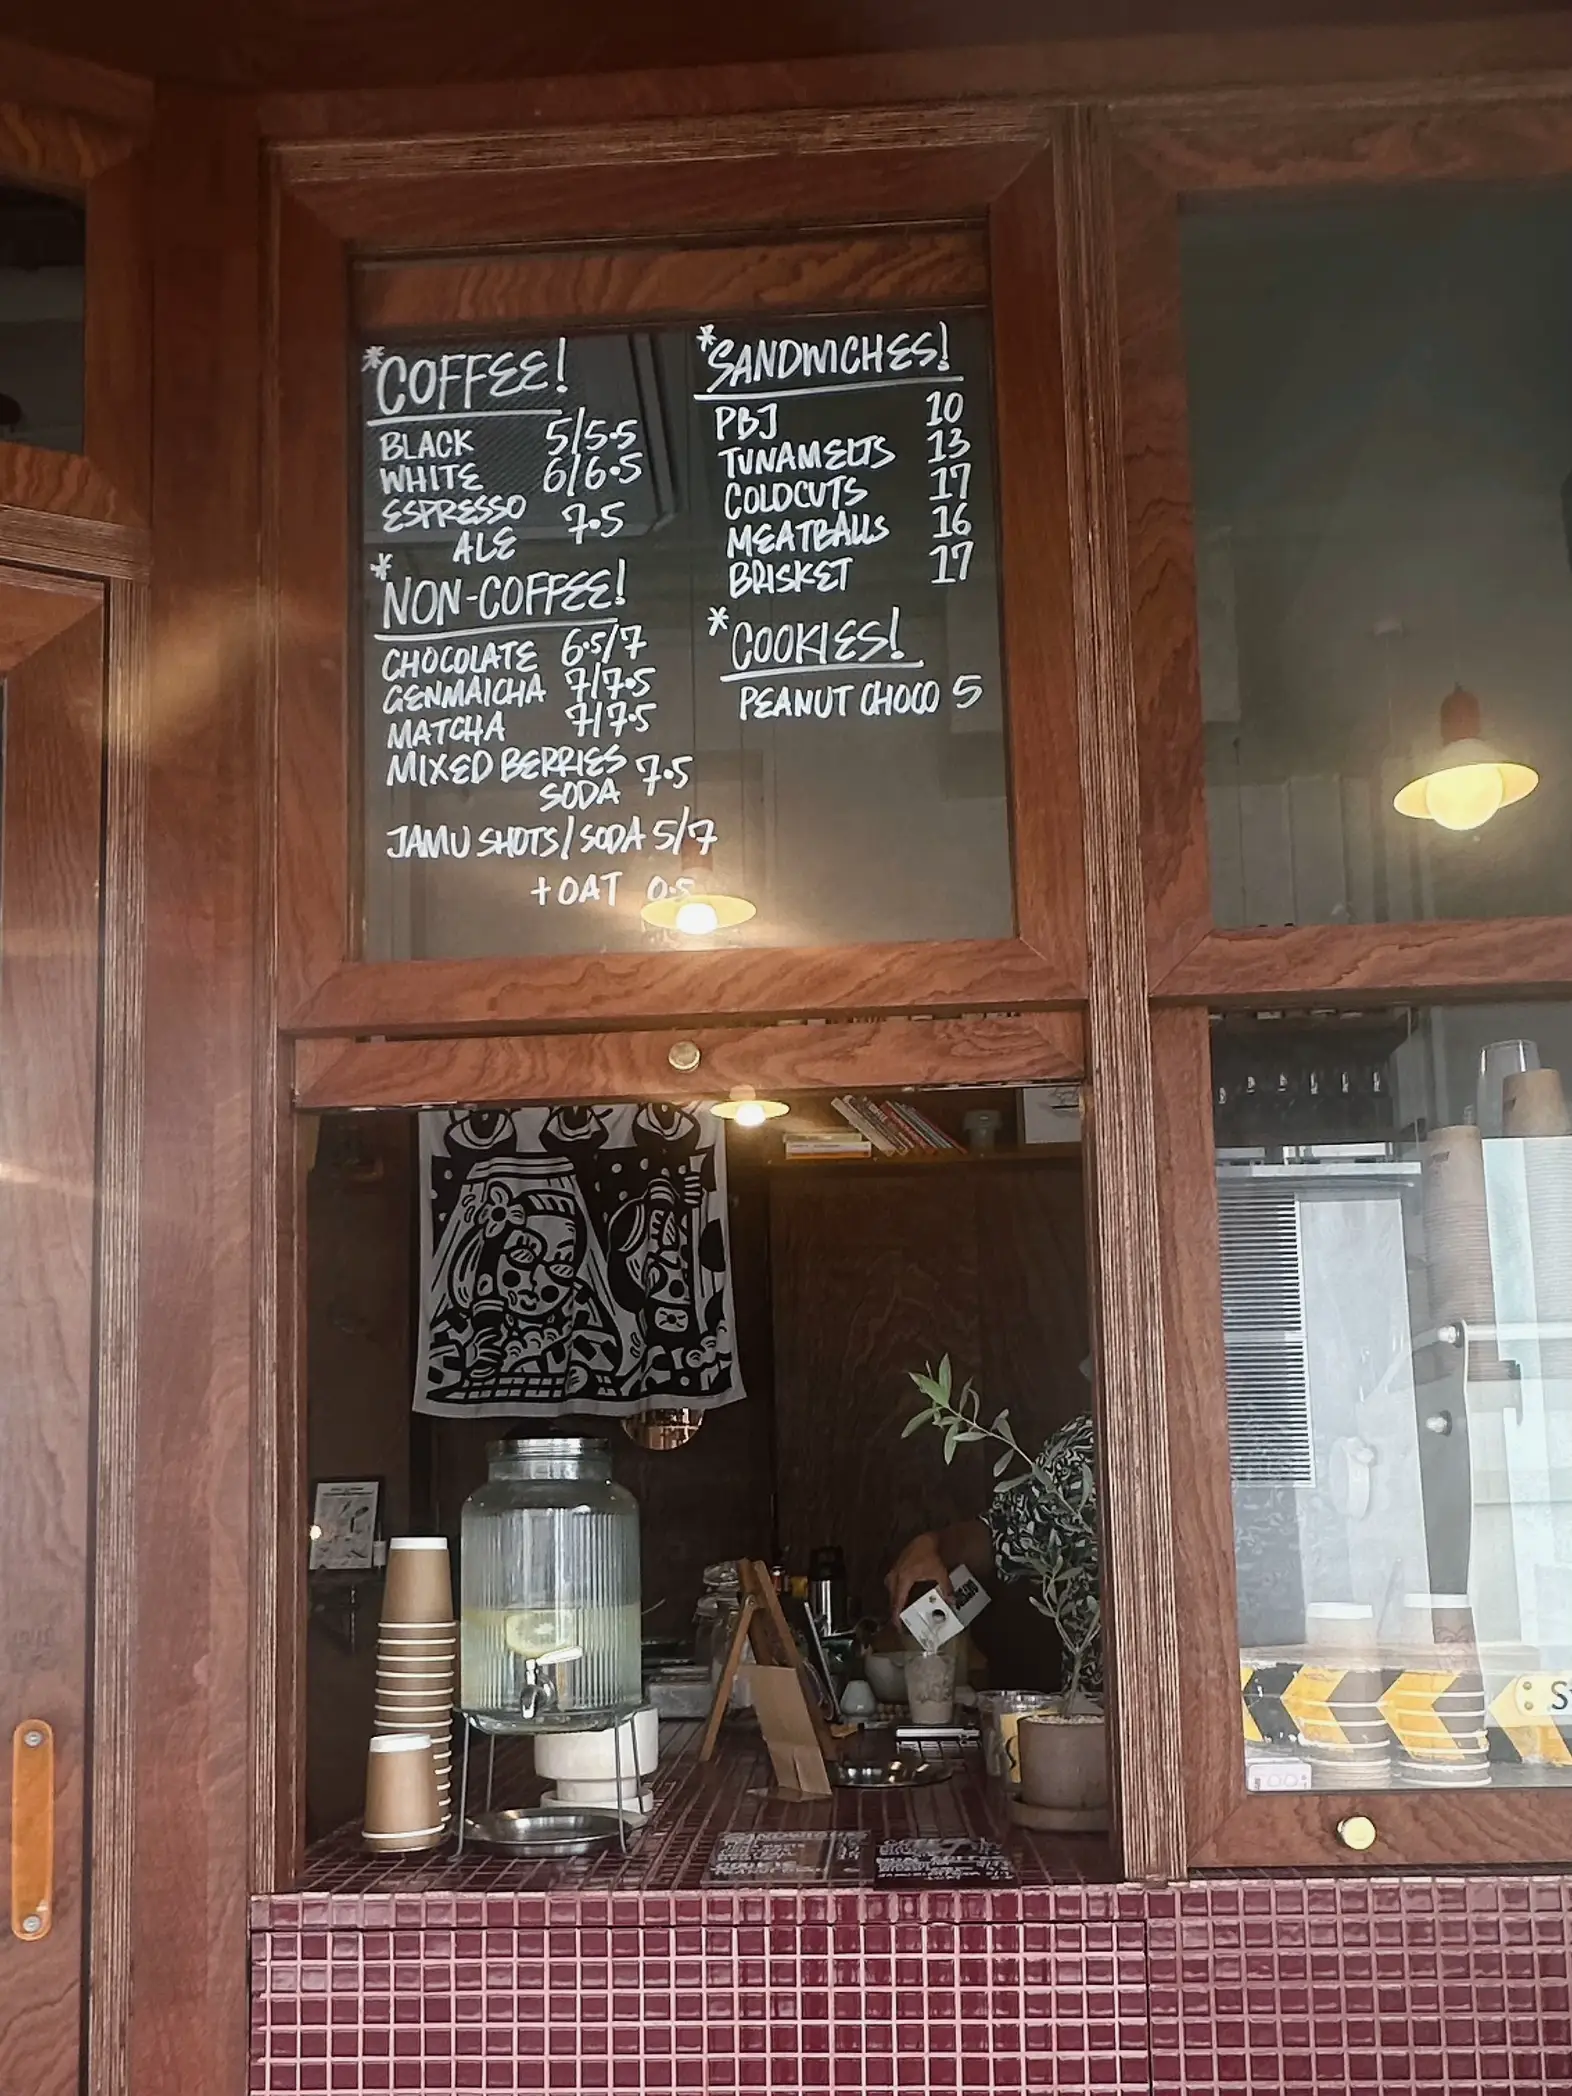 *COFFEE!
BLACK 5/5.5
WHITE 6/6.5
ESPRESSO ALE 7.5
*NON-COFFEE!
CHOCOLATE 6.5/7
GENMAICHA 7/7.5
MATCHA 7/7.5
MIXED BERRIES SODA 7.5
JAMU SHOTS/SODA 5/7
+OAT 0.5
*SANDWICHES!
PBJ 10
TUNAMELTS 13
COLDCUTS 17
MEATBALLS 16
BRISKET 17
*COOKIES!
PEANUT CHOCO 5